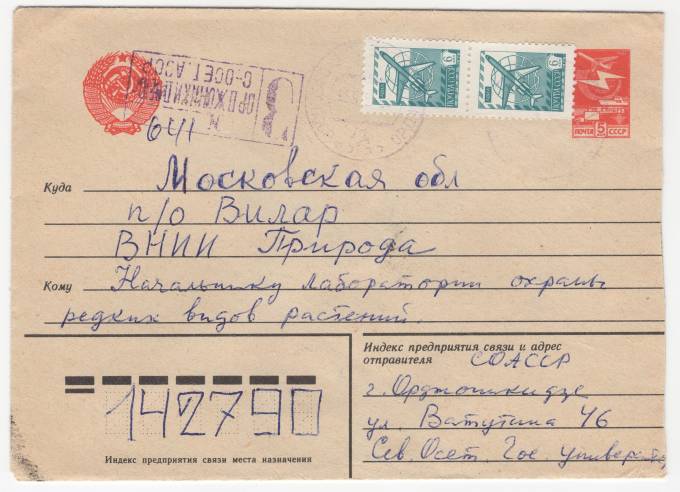 ОРДЖОНИКИДЗЕ
С-ОСЕТ. АССР
6 ПОЧТА СССР
6 ПОЧТА СССР
ПОЧТА 5 СССР
Куда Московская обл
п/о Вилар
ВНИИ Природа
Кому Начальнику лаборатории охраны
редких видов растений.
Индекс предприятия связи и адрес
отправителя СОАССР
г. Орджоникидзе
ул. Ватутина 46
Сев. Осет. Гос. Универ
142790
Индекс предприятия связи места назначения